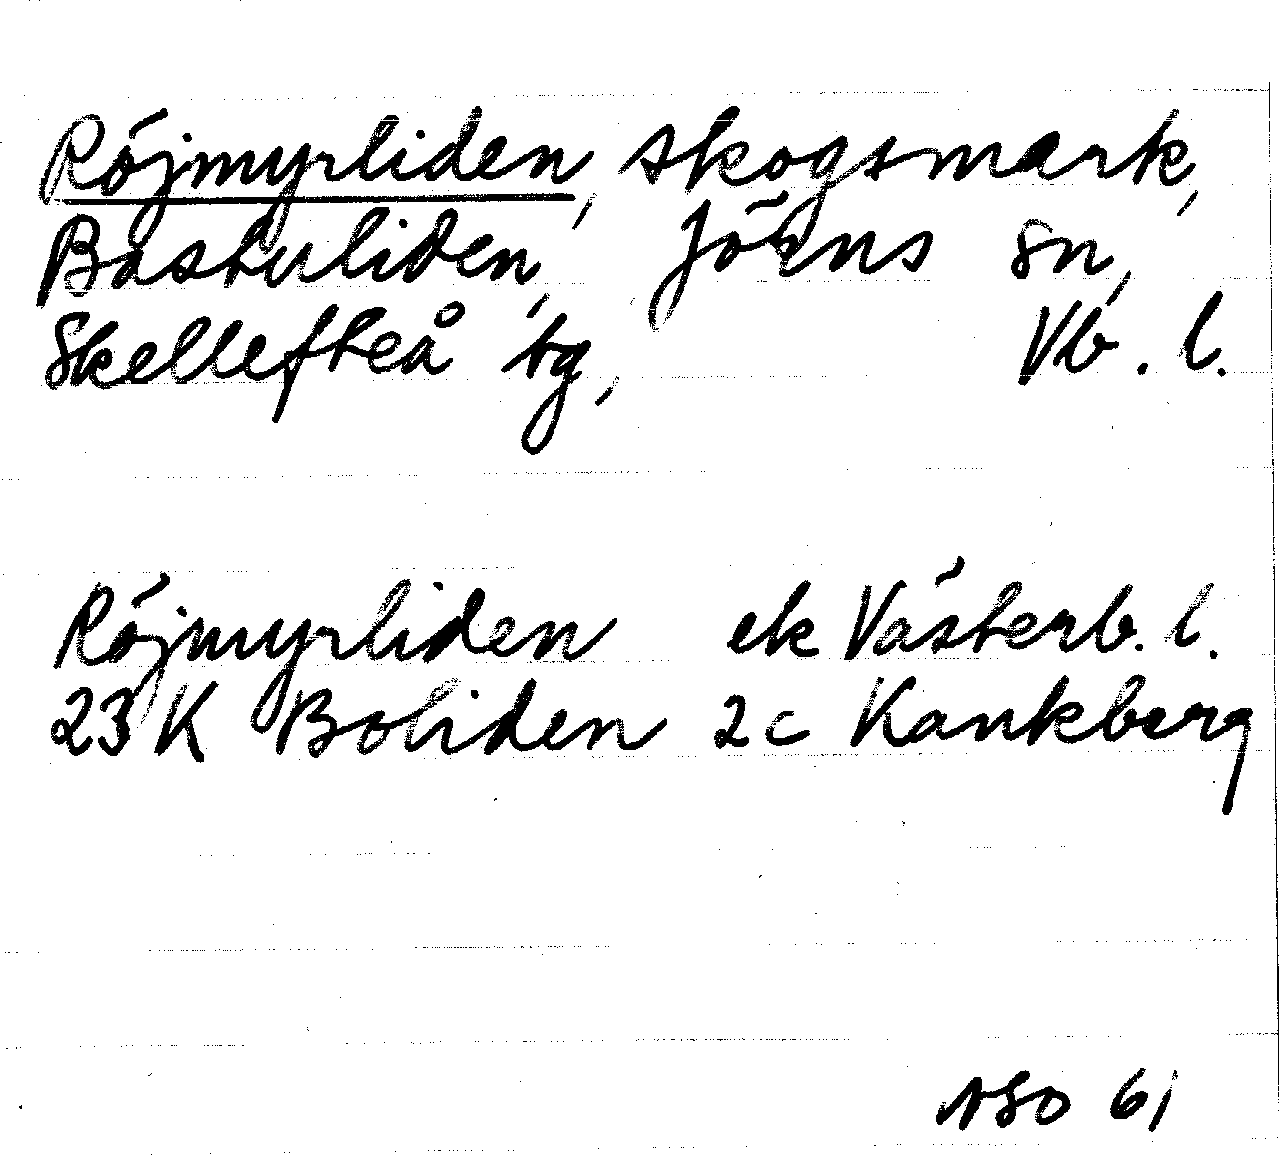 Röjmyrliden, skogsmark,
Bastuliden, Jörns sn,
Skellefteå tg, Vb. l.
Röjmyrliden ek Västerb. l.
23 K Boliden 2c Kankberg
NSO 61